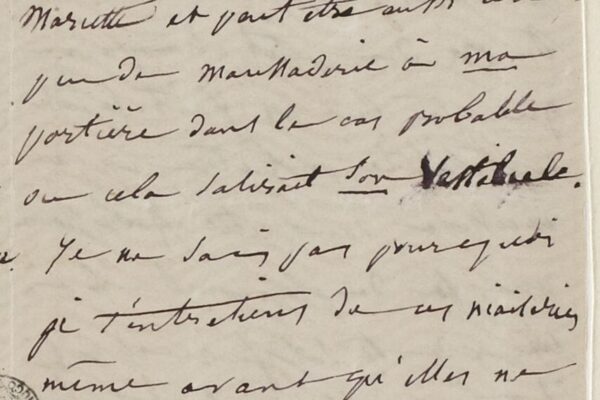 Mariette et peut être aussi un
peu de maussaderie à ma
portière dans le cas probable
ou cela salirait son vestibule.
Je ne sais pas pourquoi
je t'entretiens de ces niaiseries
même avant qu'elles ne